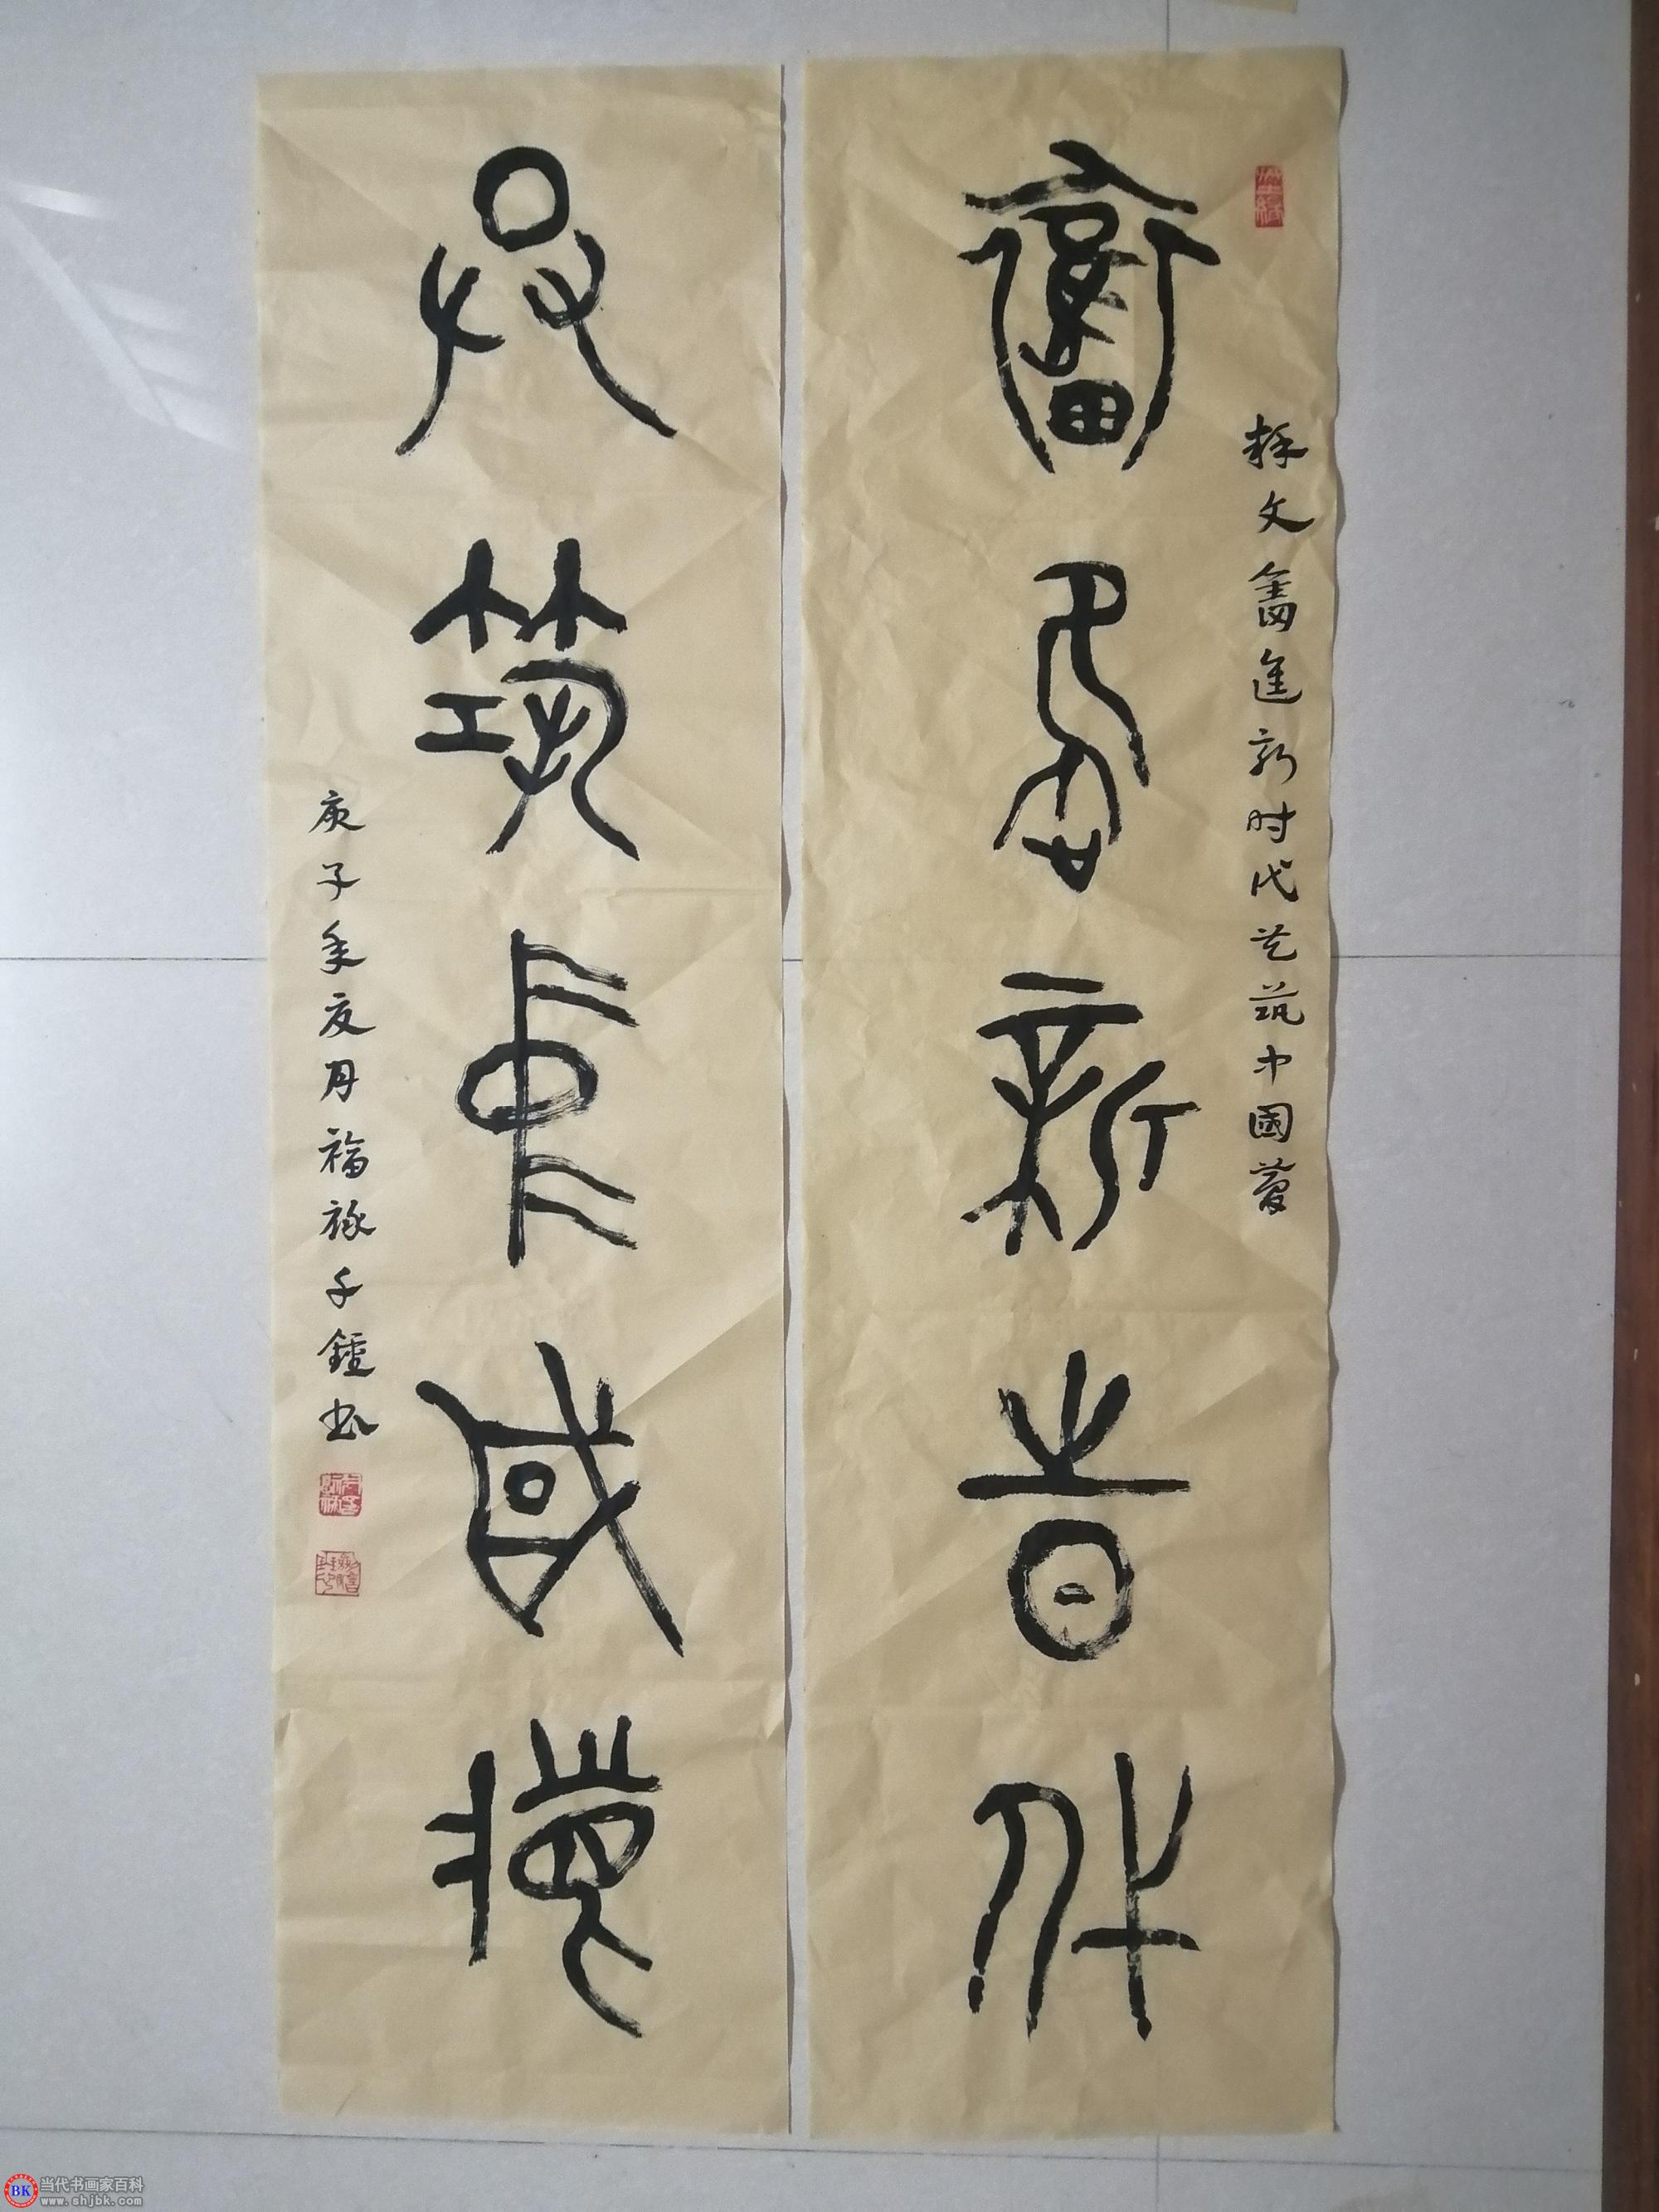 奮進新時代
共筑中國夢
释文奮進新时代共筑中國夢
庚子年夏月福祿千鍾书
当代书画家百科
www.shjbk.com
BK